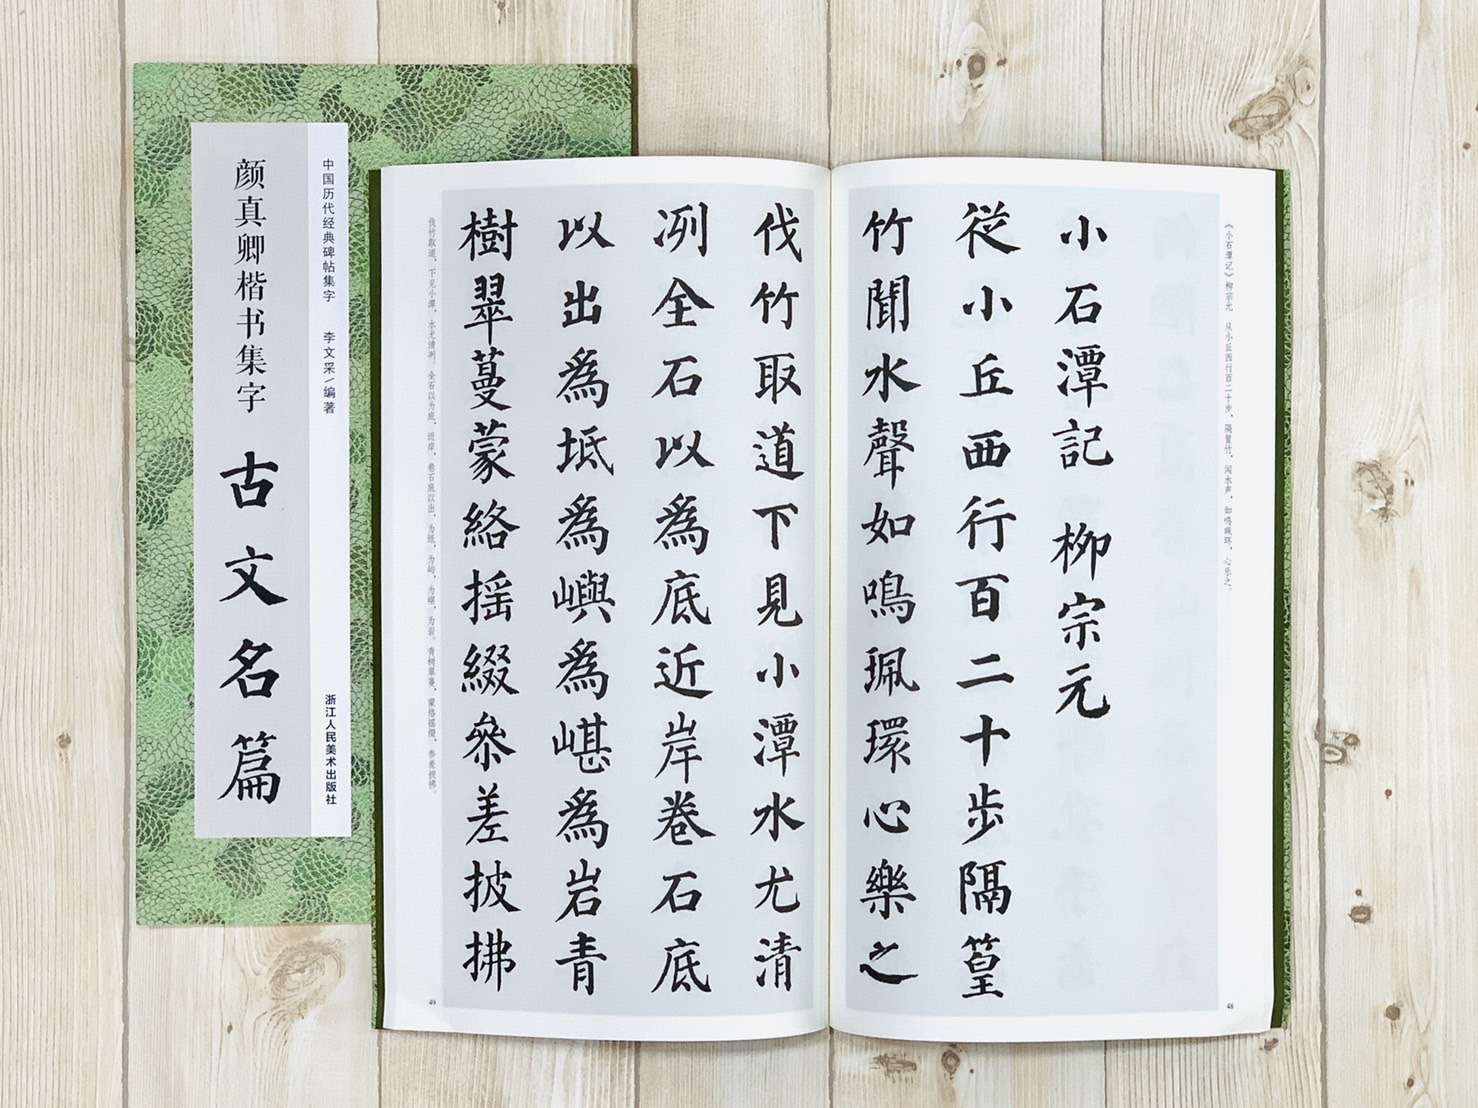 中国历代经典碑帖集字 李文采/编著
浙江人民美术出版社
颜真卿楷书集字 古文名篇
《小石潭记》柳宗元 从小丘西行百二十步，隔篁竹，闻水声，如鸣珮环，心乐之。
小石潭記 柳宗元
從小丘西行百二十步隔篁
竹聞水聲如鳴珮環心樂之
48
伐竹取道下見小潭水尤清
冽全石以為底近岸卷石底
以出為坻為嶼為嵁為岩青
樹翠蔓蒙絡揺綴參差披拂
伐竹取道，下见小潭，水尤清冽。全石以为底，近岸，卷石底以出，为坻，为屿，为嵁，为岩。青树翠蔓，蒙络摇缀，参差披拂。
49